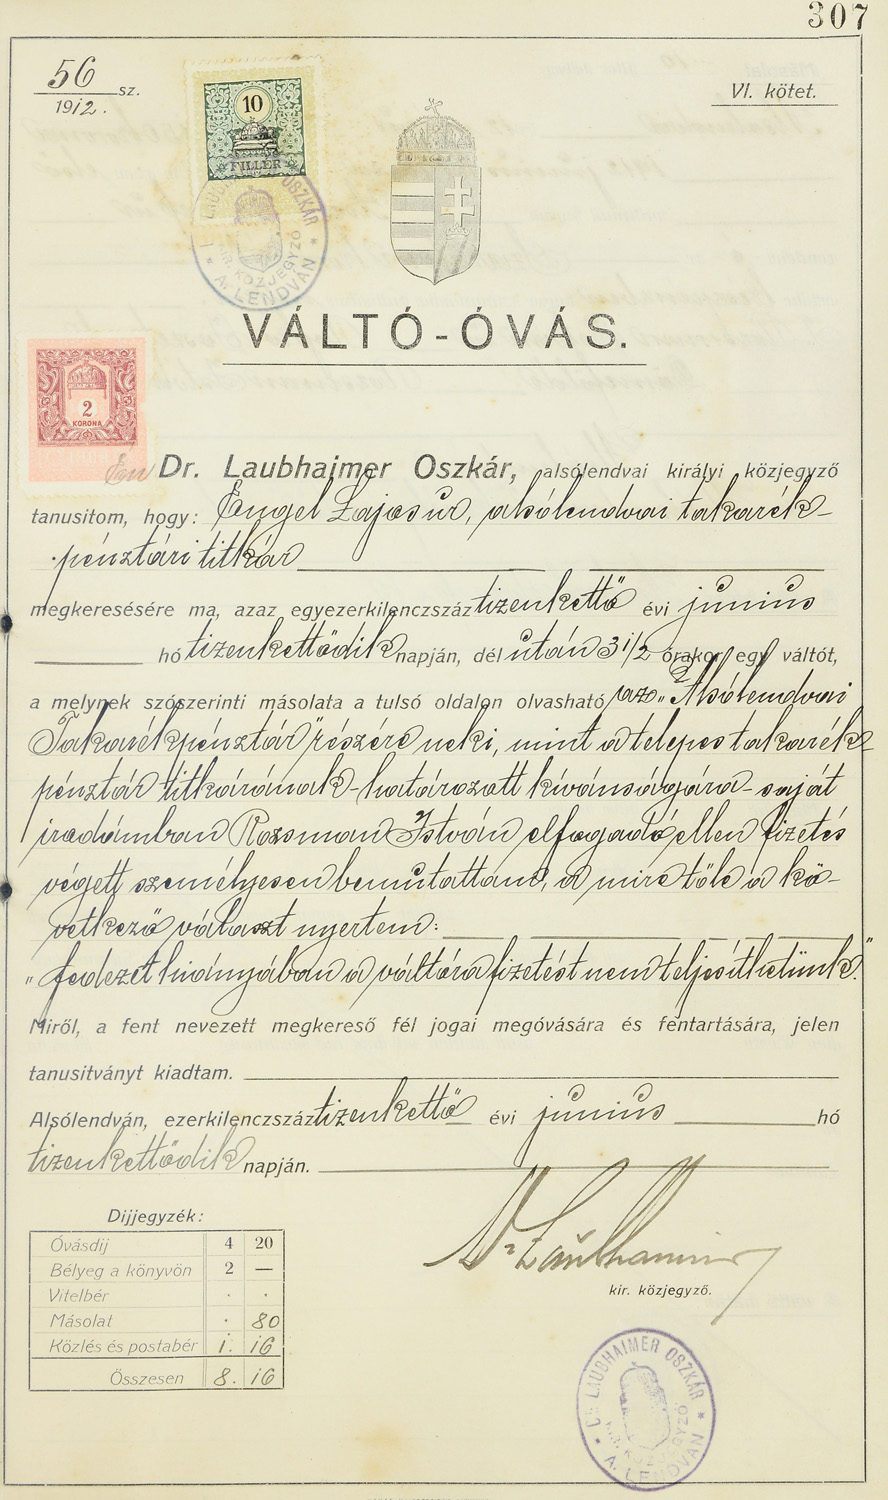 307
56 sz.
1912.
VI. kötet.
10
FILLÉR
Dr. LAUBHAIMER OSZKÁR
KIR. KÖZJEGYZŐ
* A. LENDVÁN *
VÁLTÓ-ÓVÁS.
2
KORONA
Én Dr. Laubhaimer Oszkár, alsólendvai királyi közjegyző
tanusitom, hogy: Engel Lajos úr, alsólendvai takarék-
pénztári titkár
megkeresésére ma, azaz egyezerkilenczszáz tizenkettő évi junius
hó tizenkettődik napján, dél után 3 1/2 órakor egy váltót,
a melynek szószerinti másolata a tulsó oldalon olvasható az „Alsólendvai
Takarékpénztár" részére neki, mint a telepes takarék-
pénztár titkárának – határozott kívánságára – saját
irodámban Rozsman István elfogadó ellen fizetés
végett személyesen bemutattam, a mire tőle a kö-
vetkező választ nyertem:
„fedezet hiányában a váltóra fizetést nem teljesíthetünk."
Miről, a fent nevezett megkereső fél jogai megóvására és fentartására, jelen
tanusitványt kiadtam.
Alsólendván, ezerkilenczszáz tizenkettő évi junius hó
tizenkettődik napján.
Dijjegyzék:
Óvásdij 4 20
Bélyeg a könyvön 2 —
Vitelbér . .
Másolat . 80
Közlés és postabér 1. 16
Összesen 8. 16
Dr Laubhaimer
kir. közjegyző.
Dr. LAUBHAIMER OSZKÁR
KIR. KÖZJEGYZŐ
* A. LENDVÁN *